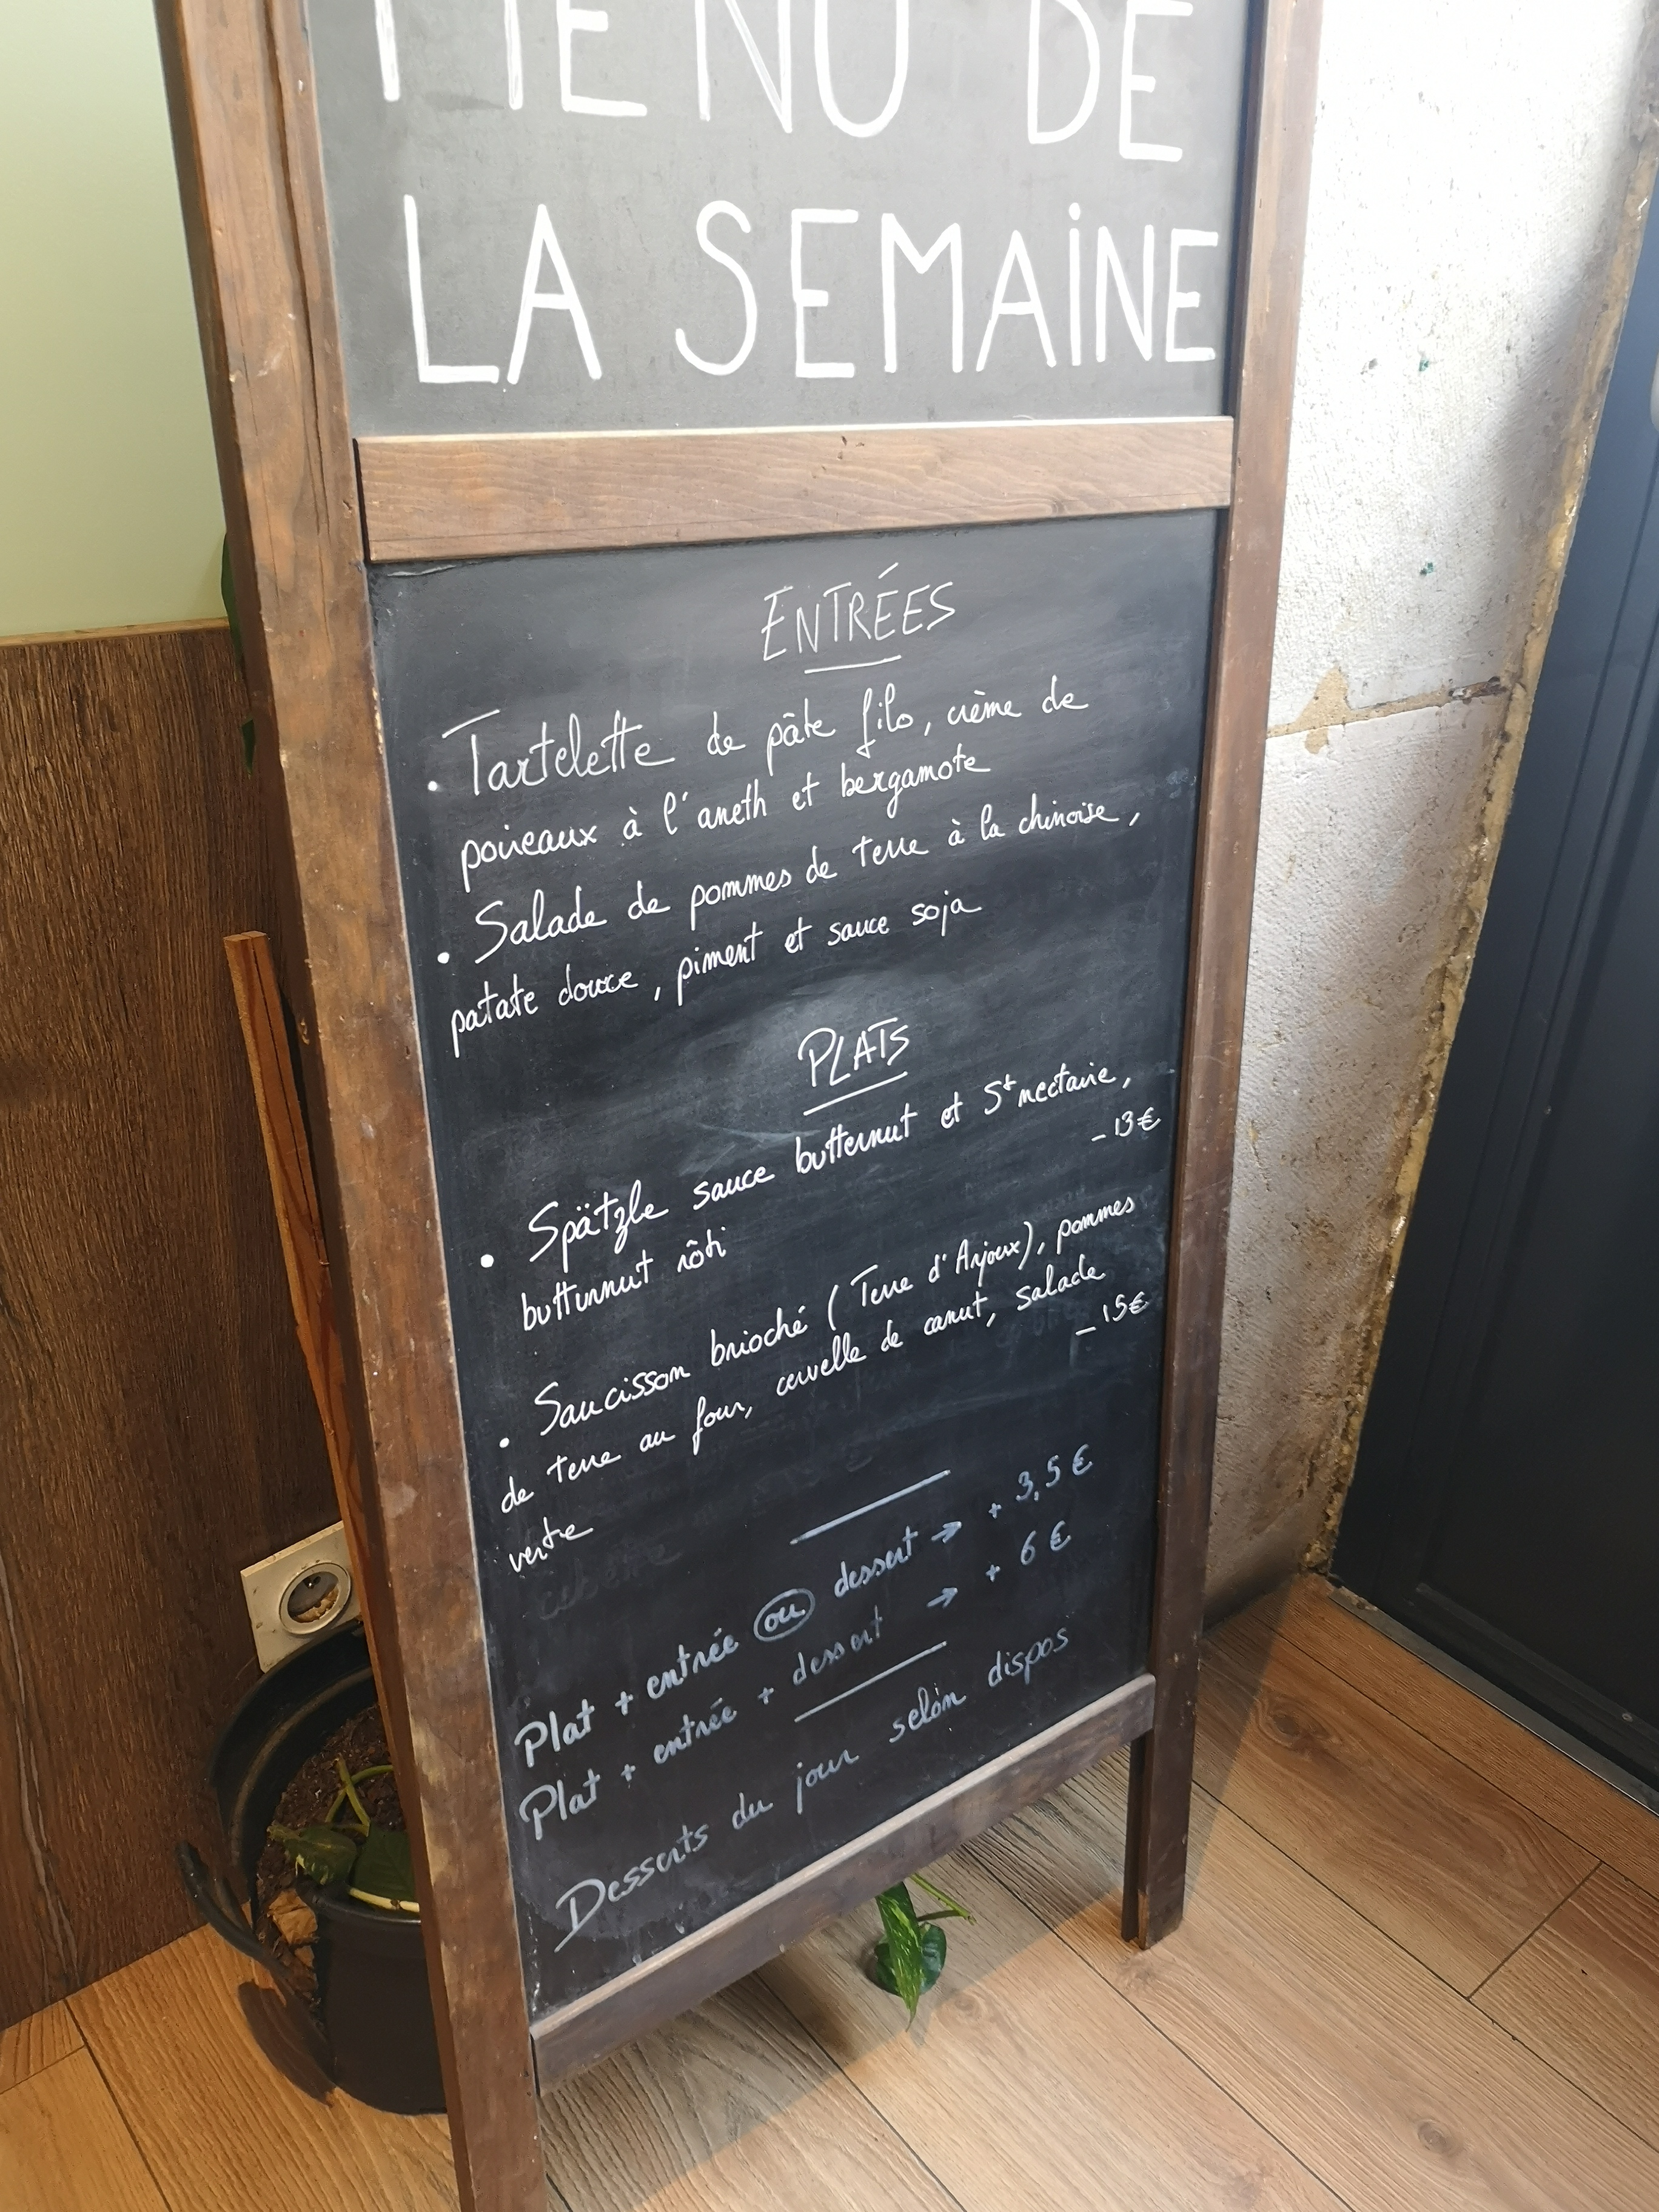 MENU DE
LA SEMAINE
ENTRÉES
• Tartelette de pâte filo, crème de
poireaux à l'aneth et bergamote
• Salade de pommes de terre à la chinoise,
patate douce, piment et sauce soja
PLATS
• Spätzle sauce butternut et St nectaire,
butternut rôti - 13€
• Saucisson brioché (Terre d'Anjoux), pommes
de terre au four, cervelle de canut, salade
verte - 15€
Plat + entrée ou dessert → + 3,5 €
Plat + entrée + dessert → + 6 €
Desserts du jour selon dispos